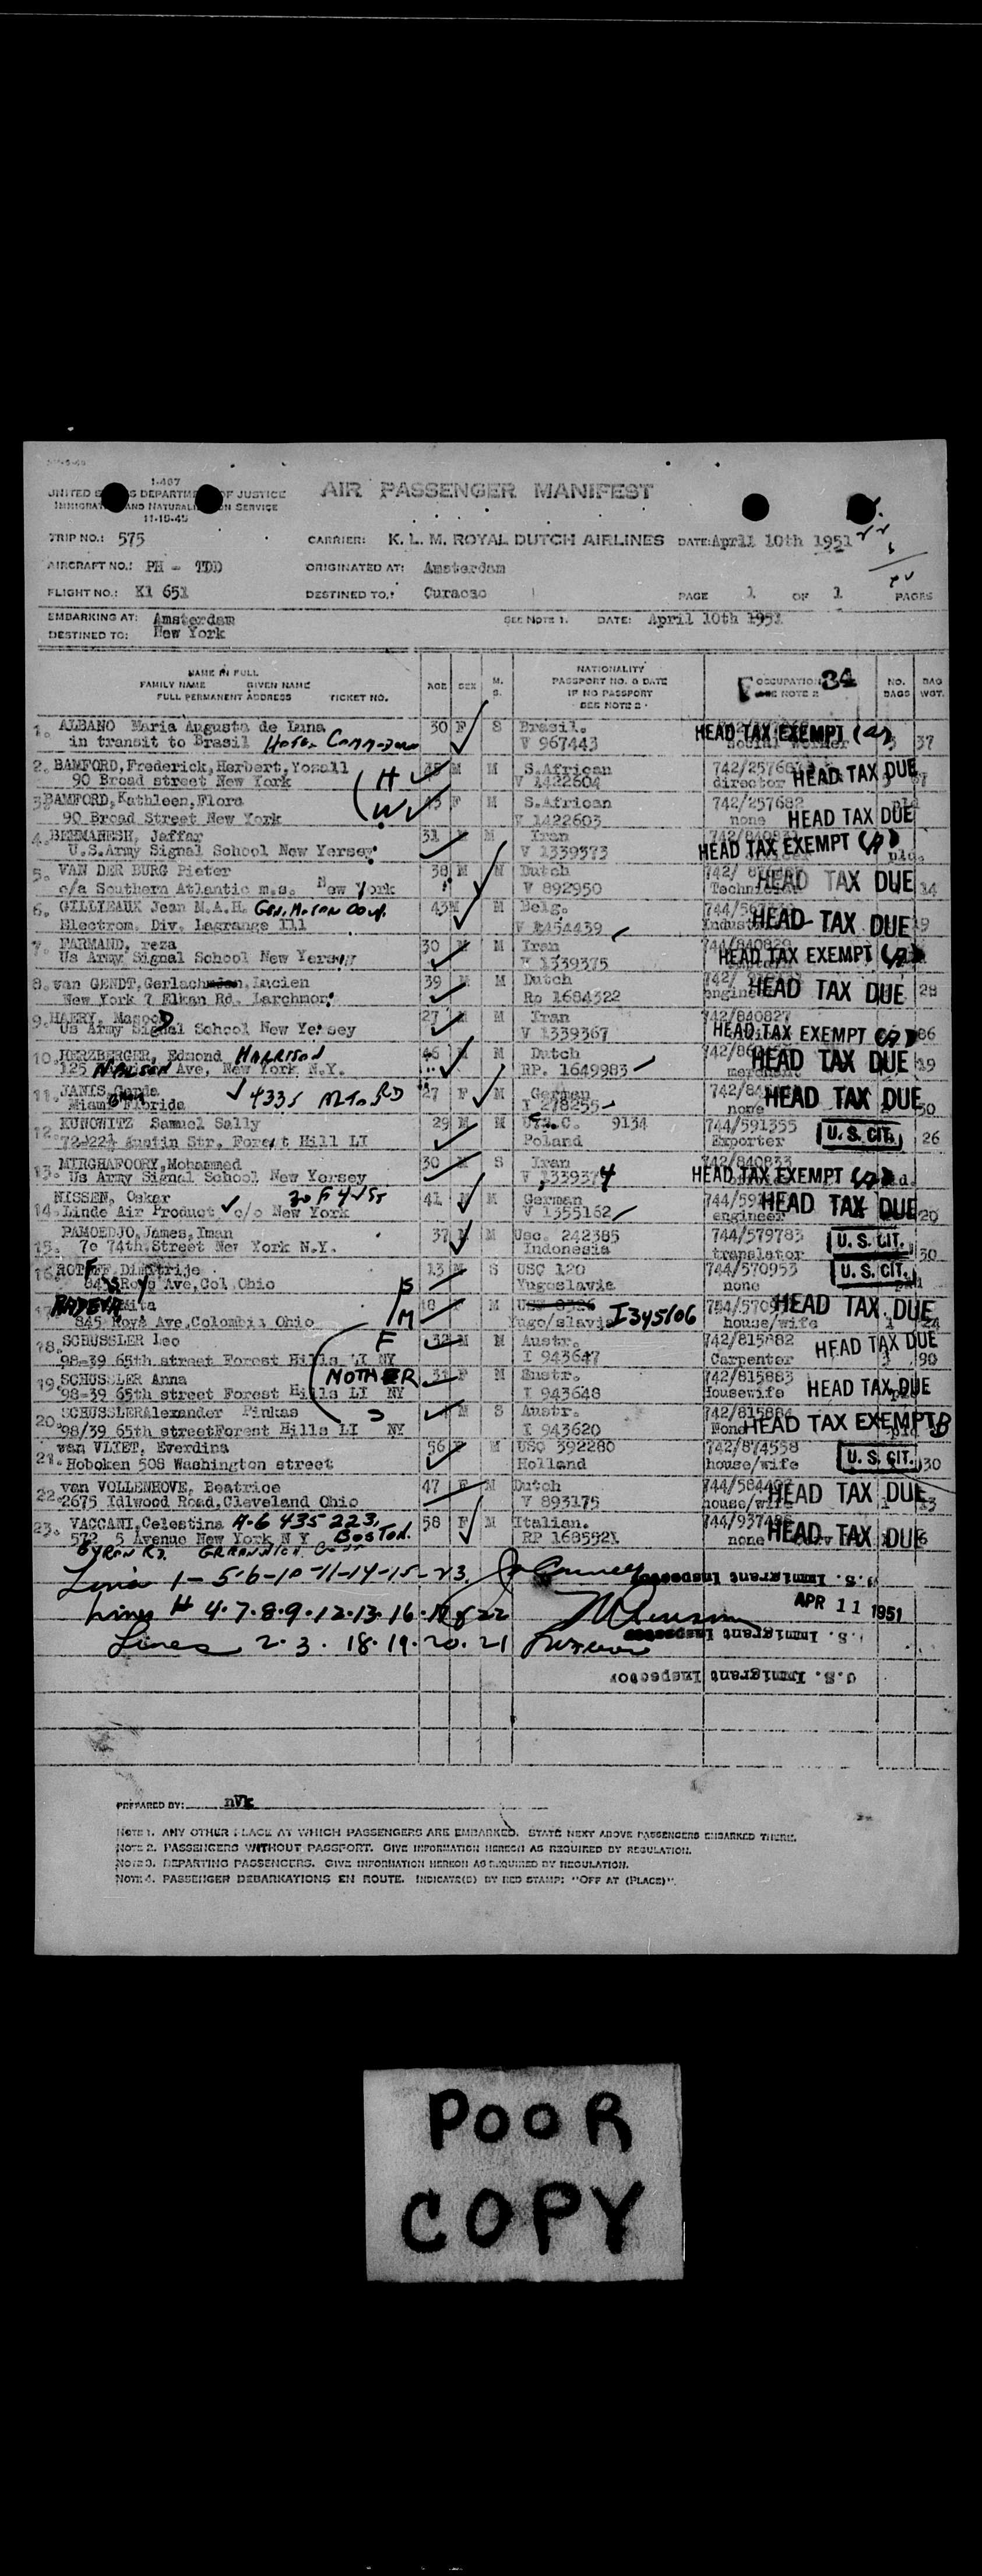 1-467
UNITED S S DEPARTME OF JUSTICE
IMMIGRAT AND NATURALI ON SERVICE
11-15-45
AIR PASSENGER MANIFEST
TRIP NO.: 575 CARRIER: K. L. M. ROYAL DUTCH AIRLINES DATE: April 10th 1951
AIRCRAFT NO.: PH - TDD ORIGINATED AT: Amsterdam
FLIGHT NO.: Kl 651 DESTINED TO: Curacao PAGE 1 OF 1 PAGES
EMBARKING AT: Amsterdam SEE NOTE 1. DATE: April 10th 1951
DESTINED TO: New York
NAME IN FULL
FAMILY NAME GIVEN NAME
FULL PERMANENT ADDRESS TICKET NO.
AGE SEX M. S.
NATIONALITY
PASSPORT NO. & DATE
IF NO PASSPORT
SEE NOTE 2
OCCUPATION 34
SEE NOTE 2
NO. BAGS BAG WGT.
1. ALBANO Maria Augusta de Luna 30 F S Brasil. HEAD TAX EXEMPT
in transit to Brasil V 967443 37
2. BAMFORD, Frederick, Herbert, Yoxall H M M S.African HEAD TAX DUE
90 Broad street New York V 1422604 director
3. BAMFORD, Kathleen, Flora W F M S.African 742/257682
90 Broad Street New York V 1422603 none HEAD TAX DUE
4. BEHMANESH, Jaffar 31 M Iran HEAD TAX EXEMPT
U.S.Army Signal School New Yersey V 1339373
5. VAN DER BURG Pieter 38 M M Dutch HEAD TAX DUE
c/a Southern Atlantic m.s. New York V 892950 14
6. GILLIEAUX Jean M.A.H. 43 M M Belg. HEAD TAX DUE
Electrom. Div. Lagrange Ill V 1454439
7. FARMAND, reza 30 M M Iran 744/840829
Us Army Signal School New Yersey V 1339375 HEAD TAX EXEMPT
8. van GENDT, Gerlach, Lucien 39 M M Dutch HEAD TAX DUE
New York 7 Elkan Rd. Larchmon Rp 1684322 engine 28
9. HAERY, Masoo D 27 M M Iran 742/840827
Us Army Signal School New Yersey V 1339367 HEAD TAX EXEMPT 86
10. HERZBERGER, Edmond HARRISON 46 M M Dutch HEAD TAX DUE
125 Ave, New York N.Y. RP. 1649983 19
11. JANIS, Gerda 4335 27 F M German HEAD TAX DUE
Miami Florida I 278255 none 30
12. KUNOWITZ Samuel Sally 29 M M U.S.C. 9134 744/591355 U. S. CIT.
72-22½ Austin Str. Forest Hill LI Poland Exporter 26
13. MIRGHAFOORY, Mohammed 30 S Iran 742/840833
Us Army Signal School New Yersey V 1339374 HEAD TAX EXEMPT
14. NISSEN, Oskar 41 M M German HEAD TAX DUE
Linde Air Product c/o New York V 1355162 engineer 20
15. PAMOEDJO, James, Iman 37 M M Usc. 242385 744/579783 U. S. CIT.
7e 74th Street New York N.Y. Indonesia translator 30
16. ROTEFF, Dimitrije 13 M S USC 120 744/570953 U. S. CIT.
845 Roys Ave, Col. Ohio Yugoslavie none
17. RADEVA Mita 48 F M I345106 HEAD TAX DUE
845 Roys Ave, Colombis Ohio Yugo/slavia house/wife 24
18. SCHUSSLER Leo F 32 M M Austr. 742/815882 HEAD TAX DUE
98-39 65th street Forest Hills LI NY I 943647 Carpenter 90
19. SCHUSSLER Anna MOTHER 31 F M Eustr. 742/815883
98-39 65th street Forest Hills LI NY I 943648 Housewife HEAD TAX DUE
20. SCHUSSLERAlexander Pinkas S M S Austr. 742/815884
98/39 65th streetForest Hills LI NY I 943620 None HEAD TAX EXEMPT B
21. van VLIET, Everdina 56 F M USC 392280 742/874558 U. S. CIT.
Hoboken 508 Washington street Holland house/wife 30
22. van VOLLENHOVE, Beatrice 47 F M Dutch HEAD TAX DUE
2675 Idlwood Road, Cleveland Ohio V 893175 house/wife
23. VACCANI, Celestina A-6 435 223 58 F M Italian. HEAD TAX DUE
572 5 Avenue New York N Y BOSTON. RP 1685521 none
BYRON RD.
1-5-6-10-11-14-15-23 U.S. Immigrant Inspector
Lines # 4.7.8.9.12.13.16. & 22 APR 11 1951
U.S. Immigrant Inspector
Lines 2.3. 18.19.20.21
U.S. Immigrant Inspector
PREPARED BY: nVk
NOTE 1. ANY OTHER PLACE AT WHICH PASSENGERS ARE EMBARKED. STATE NEXT ABOVE PASSENGERS EMBARKED THERE.
NOTE 2. PASSENGERS WITHOUT PASSPORT. GIVE INFORMATION HEREON AS REQUIRED BY REGULATION.
NOTE 3. DEPARTING PASSENGERS. GIVE INFORMATION HEREON AS REQUIRED BY REGULATION.
NOTE 4. PASSENGER DEBARKATIONS EN ROUTE. INDICATE(D) BY RED STAMP: "OFF AT (PLACE)".
POOR
COPY